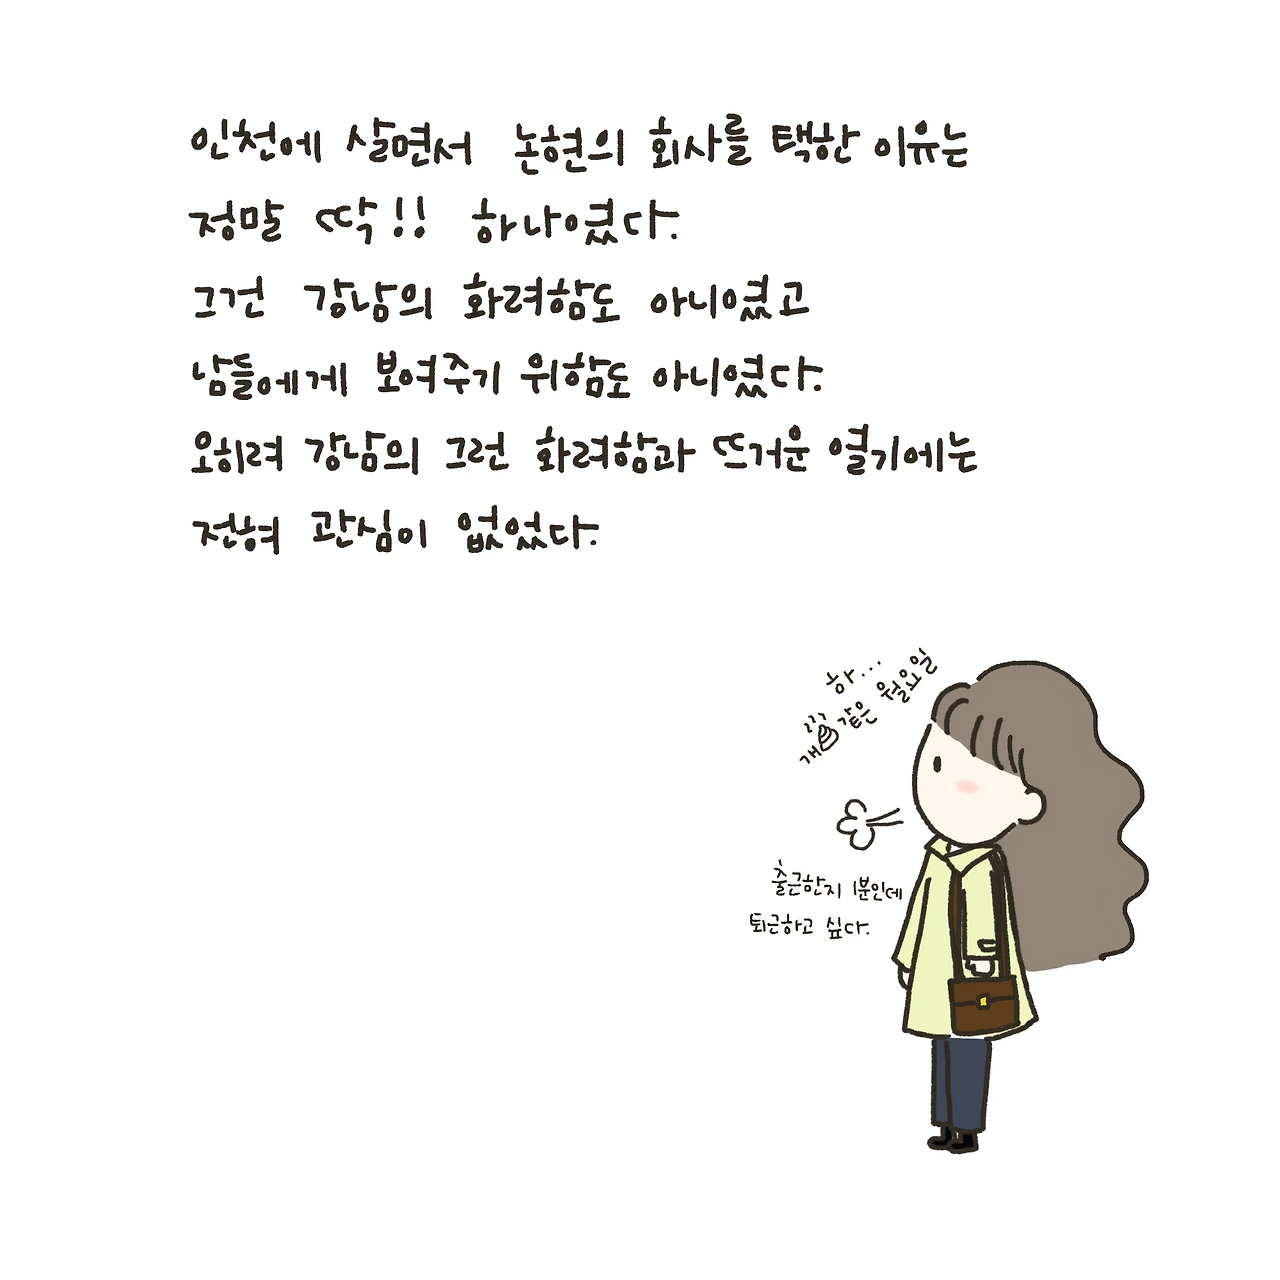 인천에 살면서 논현의 회사를 택한 이유는
정말 딱!! 하나였다.
그건 강남의 화려함도 아니였고
남들에게 보여주기 위함도 아니였다.
오히려 강남의 그런 화려함과 뜨거운 열기에는
전혀 관심이 없었다.
하...
개💩같은 월요일
출근한지 1분인데
퇴근하고 싶다.